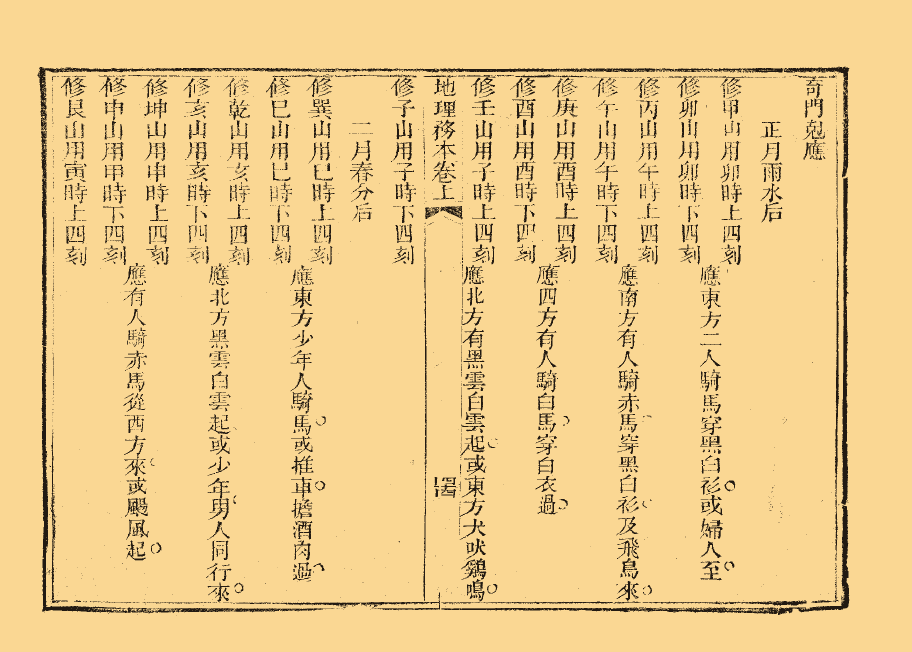 奇門尅應
正月雨水后
修甲山用卯時上四刻
應東方二人騎馬穿黑白衫或婦人至
修卯山用卯時下四刻
修丙山用午時上四刻
應南方有人騎赤馬穿黑白衫及飛鳥來
修午山用午時下四刻
修庚山用酉時上四刻
應四方有人騎白馬穿白衣過
修酉山用酉時下四刻
修壬山用子時上四刻
應北方有黑雲白雲起或東方犬吠鷄鳴
地理務本卷上
修子山用子時下四刻
二月春分后
修巽山用巳時上四刻
應東方少年人騎馬或推車擔酒肉過
修巳山用巳時下四刻
修乾山用亥時上四刻
應北方黑雲白雲起或少年男人同行來
修亥山用亥時下四刻
修坤山用申時上四刻
應有人騎赤馬從西方來或颺風起
修申山用申時下四刻
修艮山用寅時上四刻